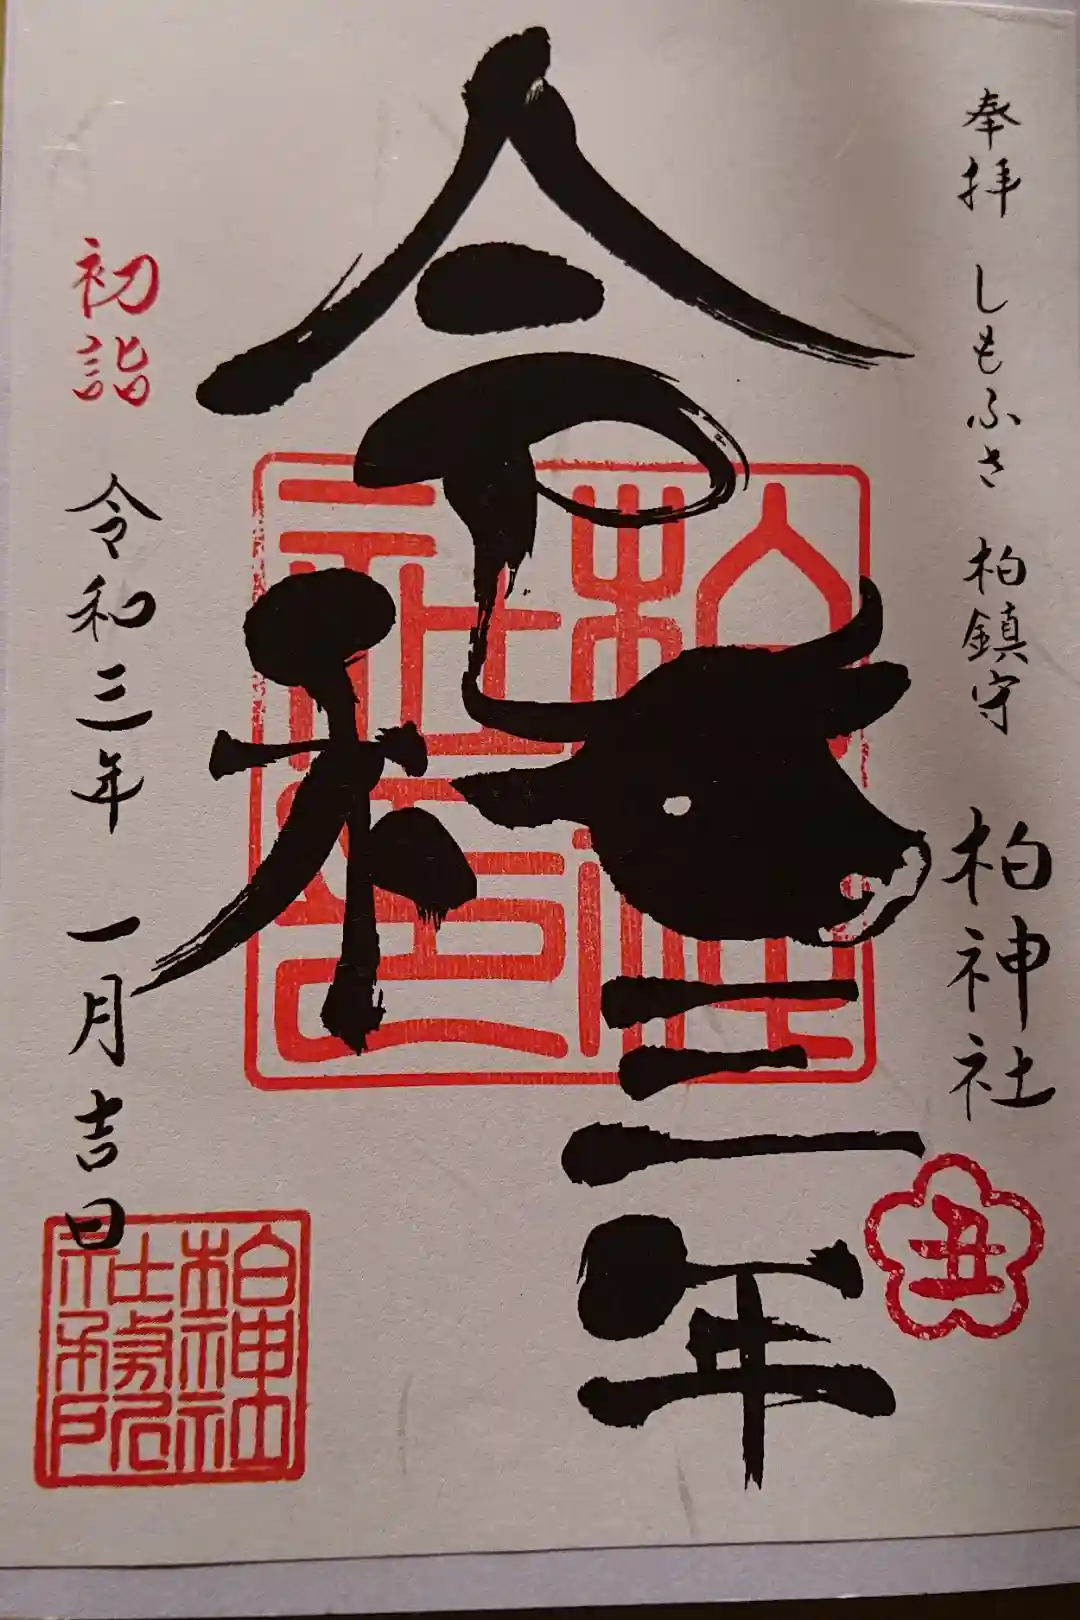 奉拝 しもふさ 柏鎮守 柏神社
丑
令和三年
柏神社印
初詣 令和三年 一月吉日
柏神社社務所印